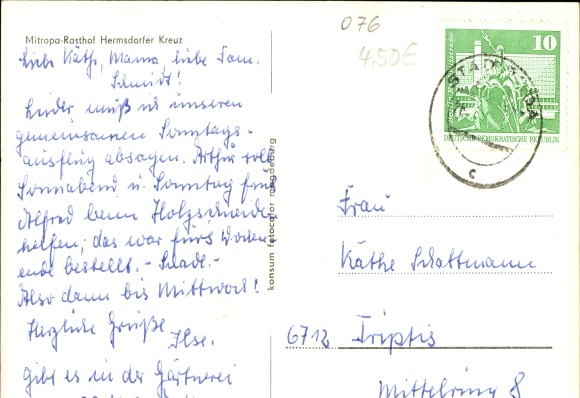 Mitropa-Rasthof Hermsdorfer Kreuz
Liebe Käthe, Mama, liebe Fam.
Schmidt!
Leider muß ich unseren
gemeinsamen Sonntags-
ausflug absagen. Arthur soll
Sonnabend u. Sonntag
Alfred beim Holzschneiden
helfen, das war fürs Wochen-
ende bestellt. - Schade. -
Also dann bis Mittwoch!
Herzliche Grüße
Ilse.
Gibt es in der Gärtnerei
konsum fotocolor magdeburg
076
4,50€
10
DEUTSCHE DEMOKRATISCHE REPUBLIK
STADTRODA
c
Frau
Käthe Schattmann
6712 Triptis
Mittelring 8